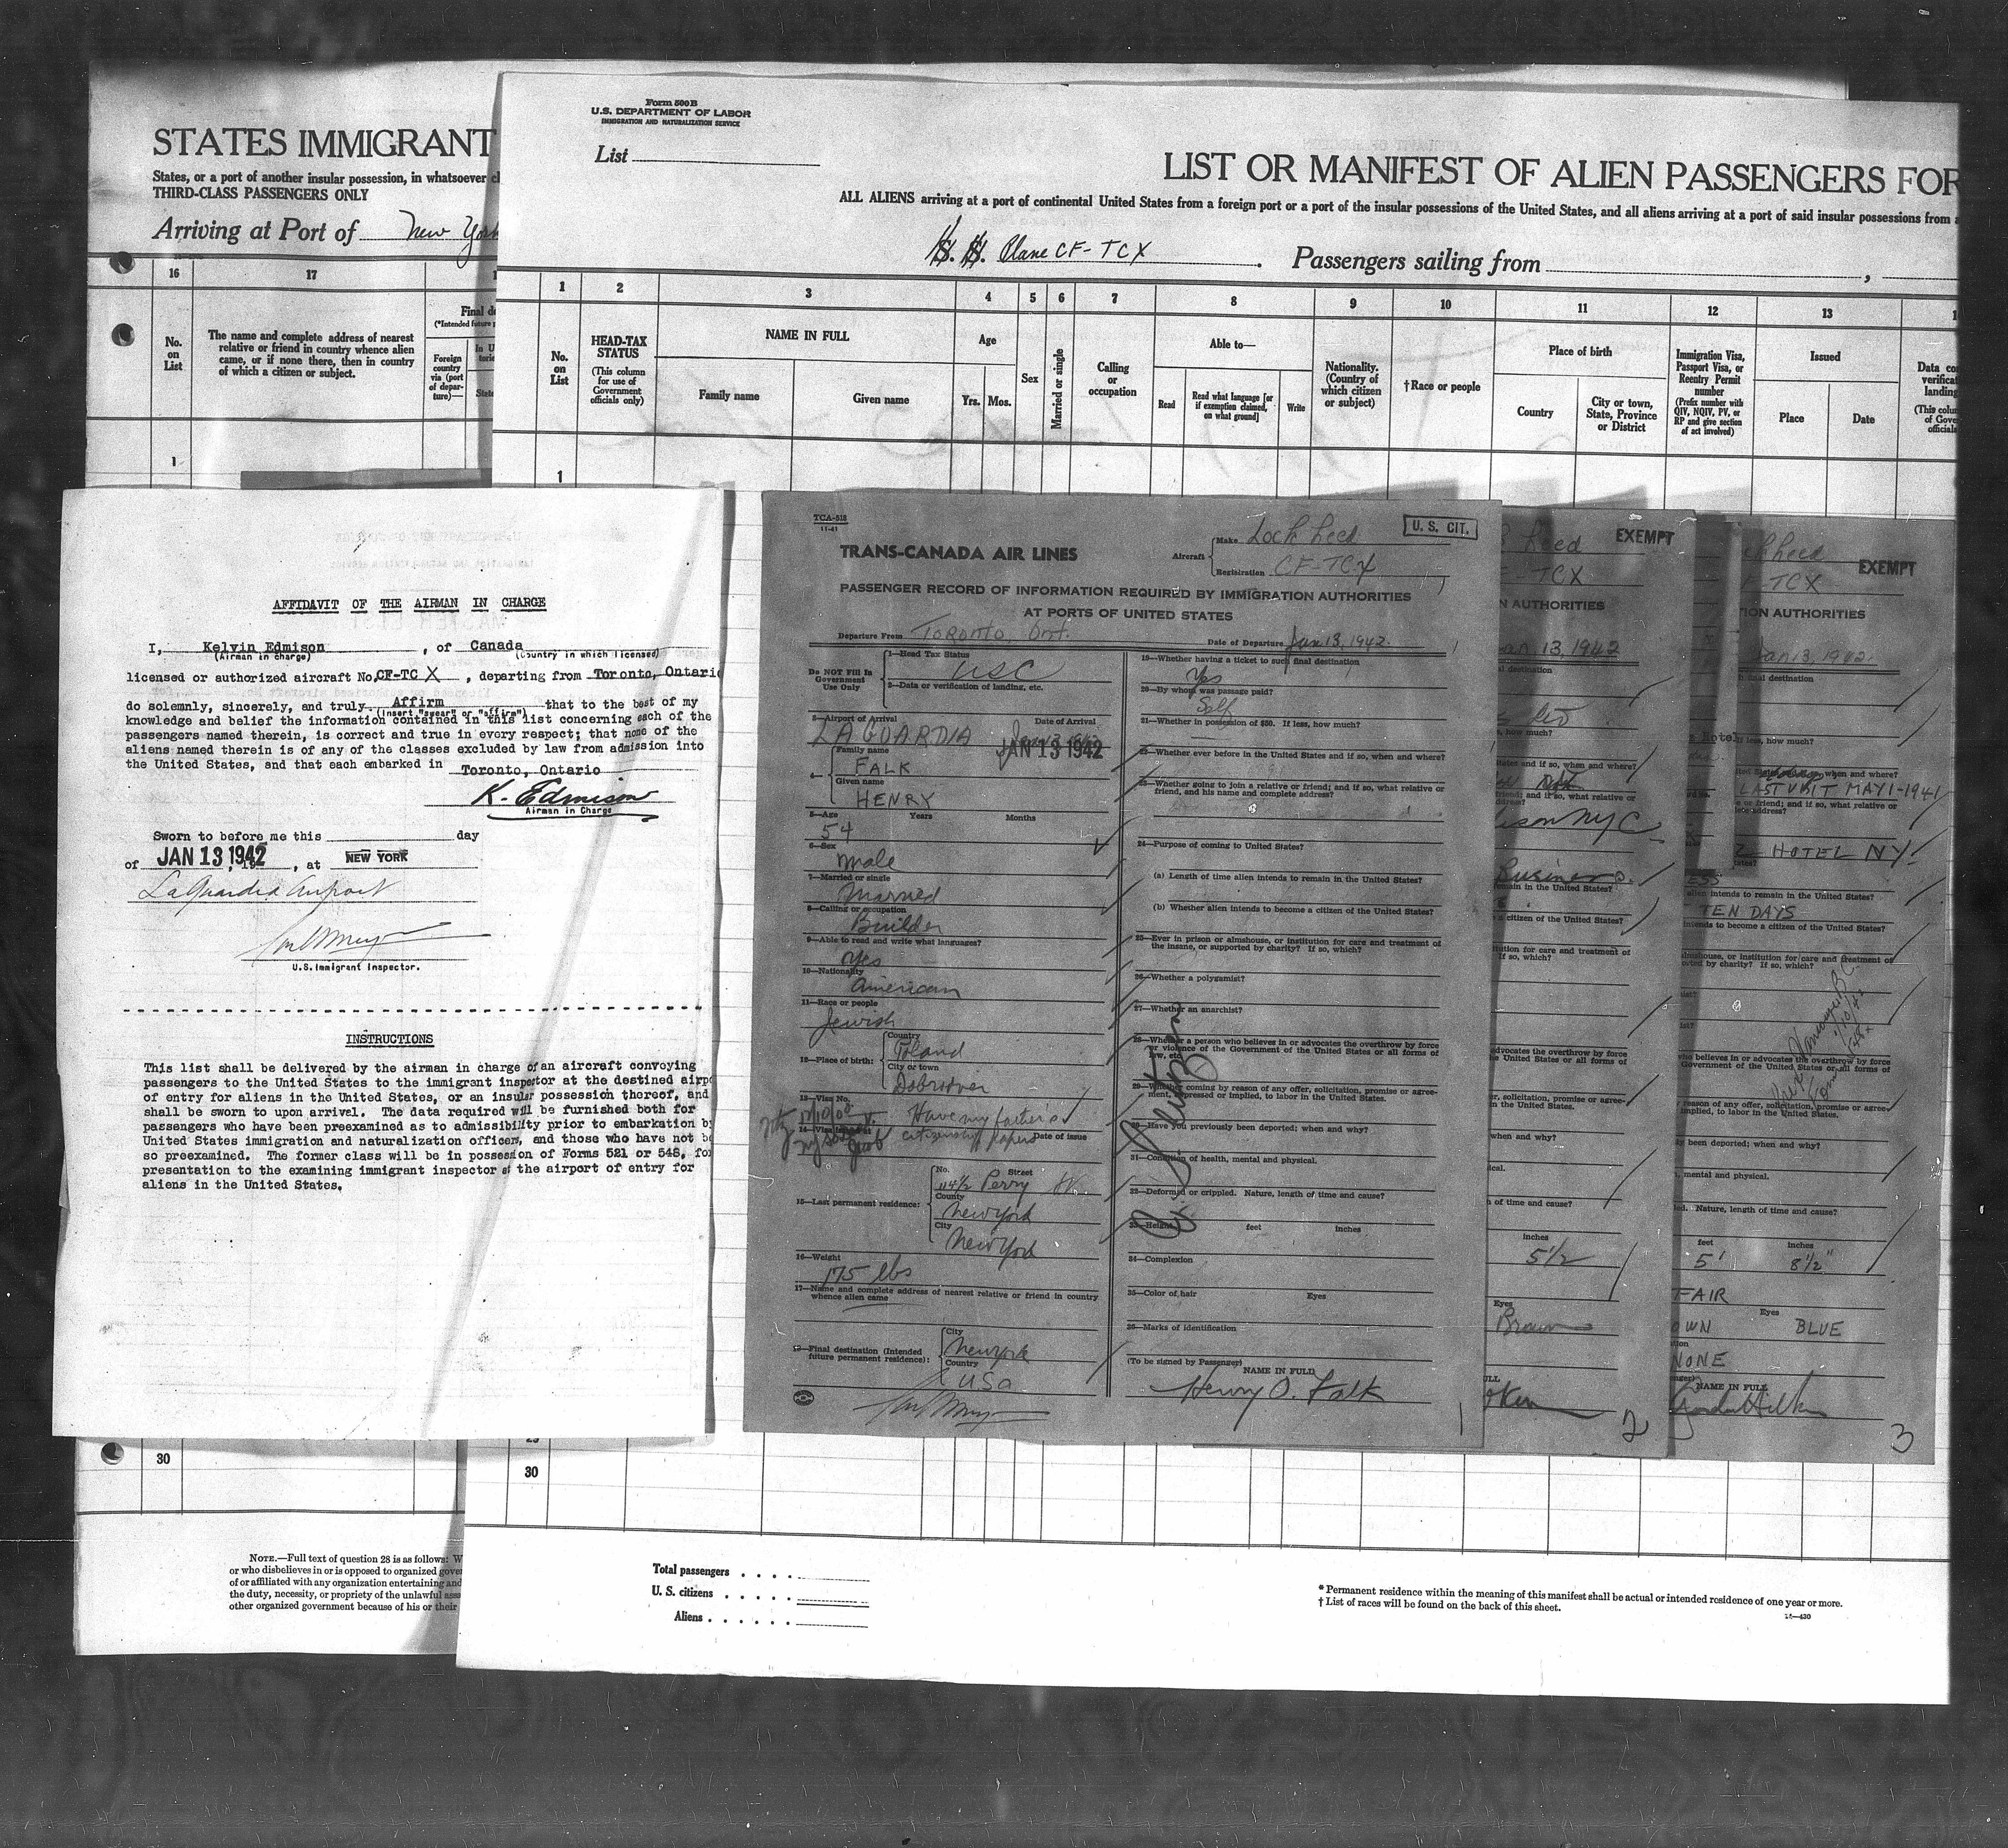 STATES IMMIGRANT
States, or a port of another insular possession, in whatsoever
THIRD-CLASS PASSENGERS ONLY
Arriving at Port of New York
16
17
No. on List
The name and complete address of nearest
relative or friend in country whence alien
came, or if none there, then in country
of which a citizen or subject.
Foreign
country
via (port
of depar-
ture)—
1
30
NOTE.—Full text of question 28 is as follows:
or who disbelieves in or is opposed to organized
of or affiliated with any organization entertaining and
the duty, necessity, or propriety of the unlawful
other organized government because of his or their
Form 500B
U.S. DEPARTMENT OF LABOR
IMMIGRATION AND NATURALIZATION SERVICE
List
LIST OR MANIFEST OF ALIEN PASSENGERS FOR
ALL ALIENS arriving at a port of continental United States from a foreign port or a port of the insular possessions of the United States, and all aliens arriving at a port of said insular possessions from
S. S. Plane CF-TCX. Passengers sailing from ,
1 2 3 4 5 6 7 8 9 10 11 12 13
No.
on
List
HEAD-TAX
STATUS
(This column
for use of
Government
officials only)
NAME IN FULL
Family name Given name
Age
Yrs. Mos.
Sex
Married or single
Calling
or
occupation
Able to—
Read
Read what language [or
if exemption claimed,
on what ground]
Write
Nationality.
(Country of
which citizen
or subject)
†Race or people
Place of birth
Country
City or town,
State, Province
or District
Immigration Visa,
Passport Visa, or
Reentry Permit
number
(Prefix number with
QIV, NQIV, PV, or
RP and give section
of act involved)
Issued
Place Date
1
30
Total passengers . . . .
U. S. citizens . . . . .
Aliens . . . . . .
* Permanent residence within the meaning of this manifest shall be actual or intended residence of one year or more.
† List of races will be found on the back of this sheet.
AFFIDAVIT OF THE AIRMAN IN CHARGE
I, Kelvin Edmison, of Canada
(Airman in charge) (Country in which licensed)
licensed or authorized aircraft No. CF-TC X, departing from Toronto, Ontario
do solemnly, sincerely, and truly Affirm that to the best of my
(insert "swear" or "affirm")
knowledge and belief the information contained in this list concerning each of the
passengers named therein, is correct and true in every respect; that none of the
aliens named therein is of any of the classes excluded by law from admission into
the United States, and that each embarked in Toronto, Ontario
K. Edmison
Airman in Charge
Sworn to before me this day
of JAN 13 1942, at NEW YORK
LaGuardia Airport
U.S. Immigrant Inspector.
INSTRUCTIONS
This list shall be delivered by the airman in charge of an aircraft conveying
passengers to the United States to the immigrant inspector at the destined
of entry for aliens in the United States, or an insular possession thereof, and
shall be sworn to upon arrival. The data required will be furnished both for
passengers who have been preexamined as to admissibility prior to embarkation
United States immigration and naturalization officers, and those who have not
so preexamined. The former class will be in possession of Forms 521 or 548,
presentation to the examining immigrant inspector at the airport of entry for
aliens in the United States.
TCA-518
11-41
U. S. CIT.
TRANS-CANADA AIR LINES
Aircraft
Make Lockheed
Registration CF-TCX
PASSENGER RECORD OF INFORMATION REQUIRED BY IMMIGRATION AUTHORITIES
AT PORTS OF UNITED STATES
Departure From TORONTO, Ont. Date of Departure Jan 13, 1942.
Do NOT Fill In
Government
Use Only
1—Head Tax Status
USC
2—Data or verification of landing, etc.
3—Airport of Arrival Date of Arrival
LAGUARDIA JAN 13 1942
4— Family name
FALK
Given name
HENRY
5—Age Years Months
54
6—Sex
Male
7—Married or single
Married
8—Calling or occupation
Builder
9—Able to read and write what languages?
Yes
10—Nationality
American
11—Race or people
Jewish
12—Place of birth:
Country
Poland
City or town
13—Visa No.
Have my father's
citizenship papers
Date of issue
15—Last permanent residence:
No. Street
114½ Perry St.
County
New York
City
New York
16—Weight
175 lbs
17—Name and complete address of nearest relative or friend in country
whence alien came
18—Final destination (Intended
future permanent residence):
City
New York
Country
USA
19—Whether having a ticket to such final destination
Yes
20—By whom was passage paid?
Self
21—Whether in possession of $50. If less, how much?
22—Whether ever before in the United States and if so, when and where?
23—Whether going to join a relative or friend; and if so, what relative or
friend, and his name and complete address?
24—Purpose of coming to United States?
(a) Length of time alien intends to remain in the United States?
(b) Whether alien intends to become a citizen of the United States?
25—Ever in prison or almshouse, or institution for care and treatment of
the insane, or supported by charity? If so, which?
26—Whether a polygamist?
27—Whether an anarchist?
28—Whether a person who believes in or advocates the overthrow by force
or violence of the Government of the United States or all forms of
law, etc.
29—Whether coming by reason of any offer, solicitation, promise or agree-
ment, expressed or implied, to labor in the United States.
30—Have you previously been deported; when and why?
31—Condition of health, mental and physical.
32—Deformed or crippled. Nature, length of time and cause?
33—Height feet inches
34—Complexion
35—Color of hair Eyes
36—Marks of identification
(To be signed by Passenger)
NAME IN FULL
Henry O. Falk
1
EXEMPT
TCX
N AUTHORITIES
13, 1942
Business.
inches
5½
Eyes
Brown
2
EXEMPT
TCX
ION AUTHORITIES
Jan 13, 1942.
Hotel
LAST VISIT MAY 1-1941
HOTEL NY.
TEN DAYS
feet inches
5' 8½"
FAIR
Eyes
BLUE
NONE
NAME IN FULL
3